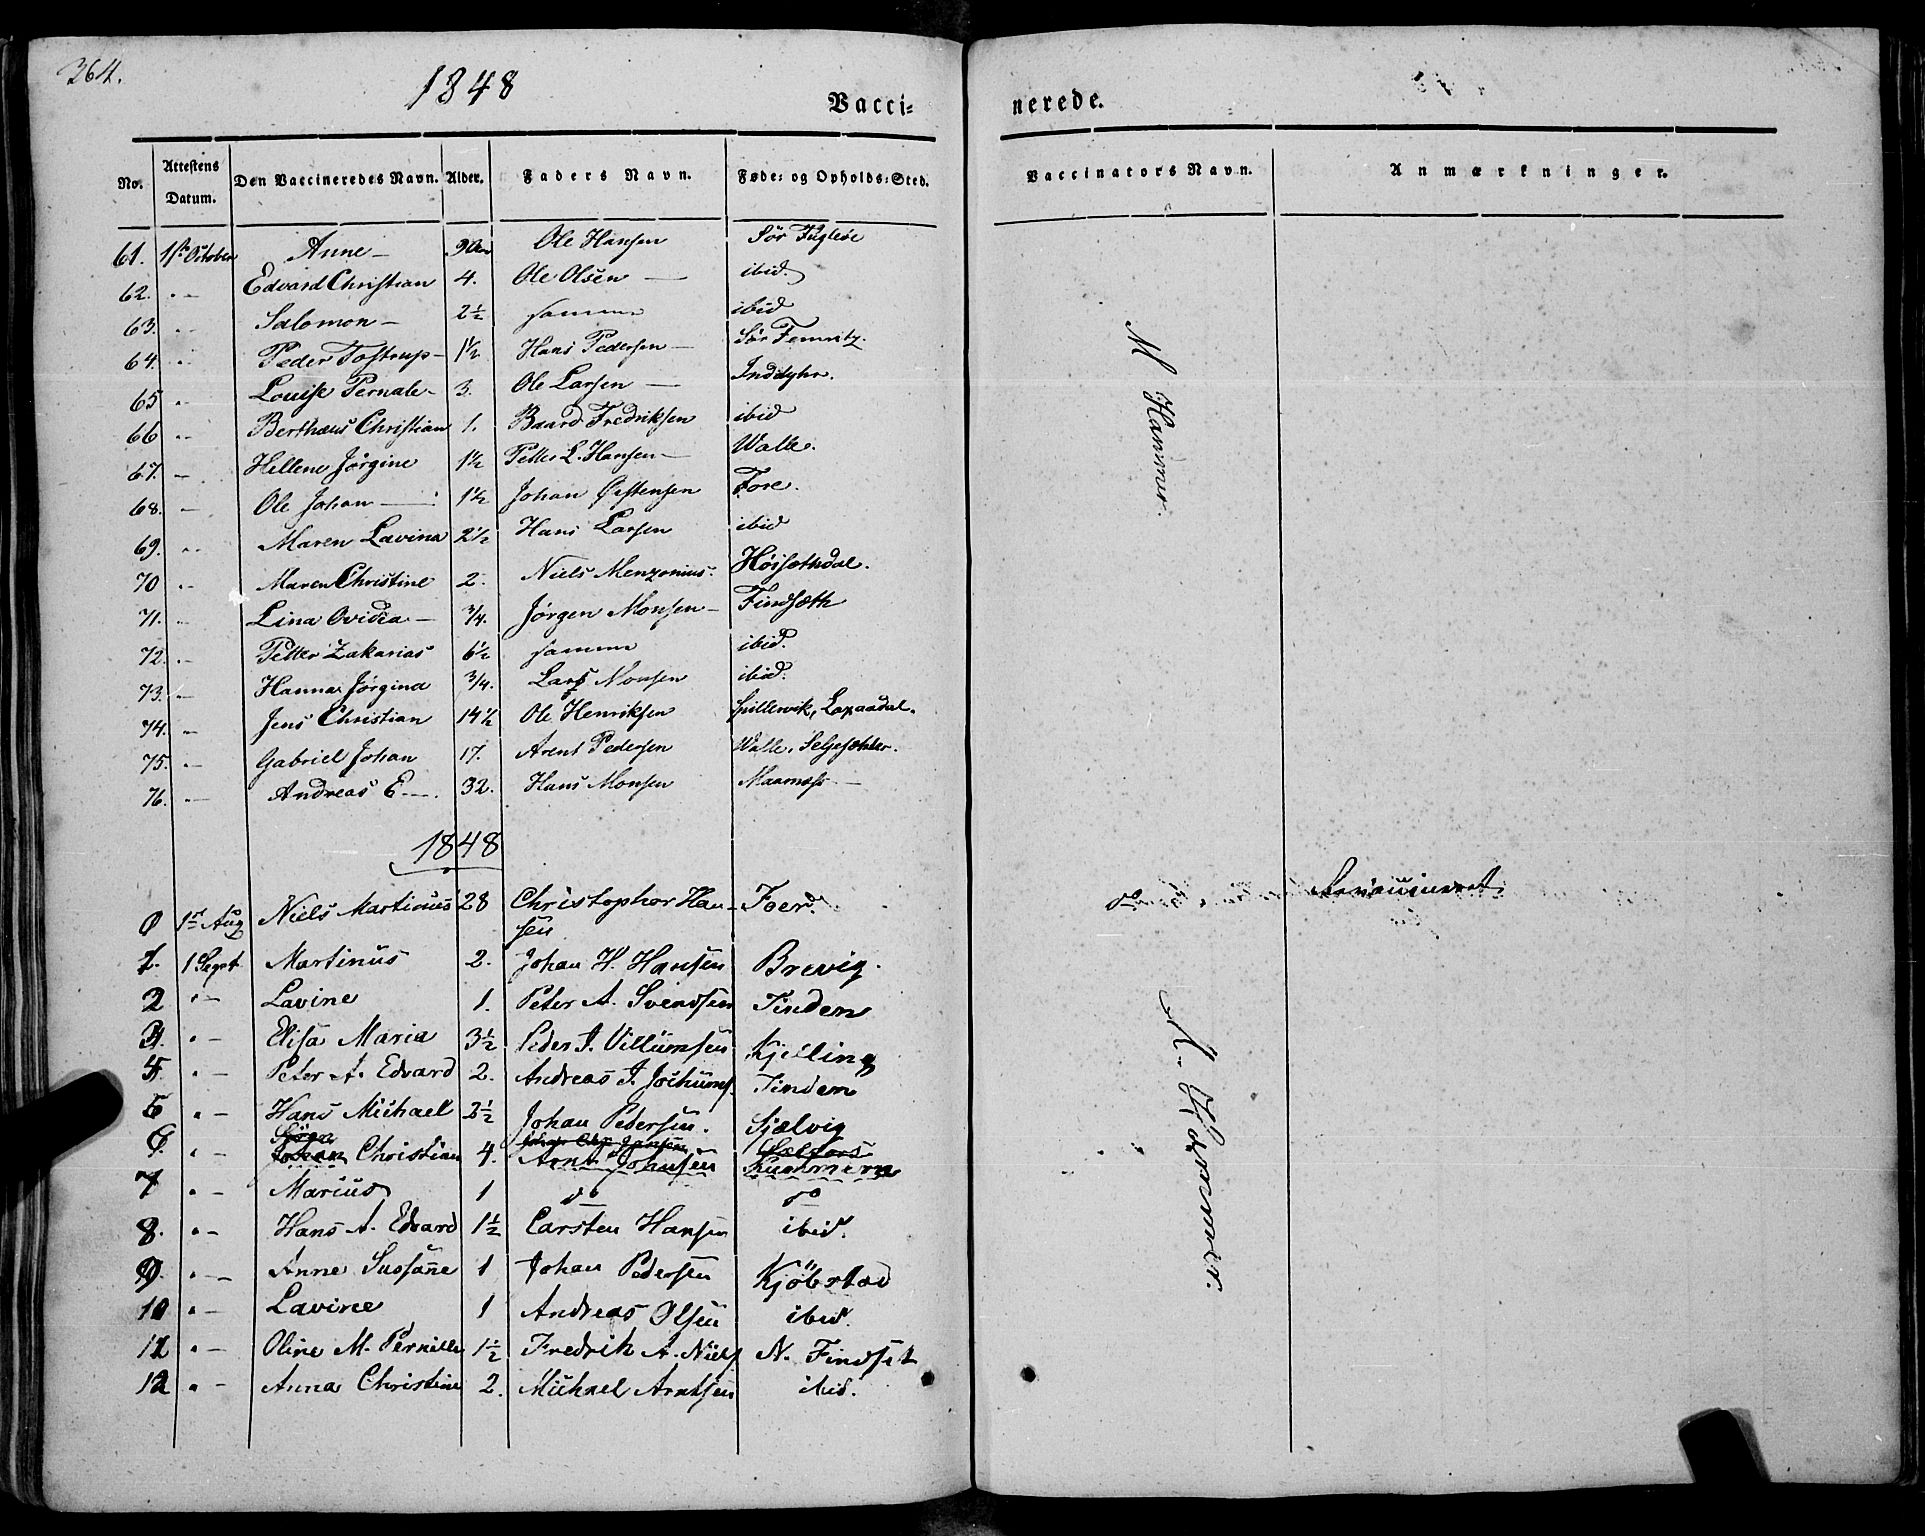 364.
1848
Vacci-
nerede.
No. Attestens Datum. Den Vaccineredes Navn. Alder. Faders Navn. Føde- og Opholds-Sted. Vaccinators Navn. Anmærkninger.
61. 1ste October Anne — 9 Aar Ole Hansen Sør Fugleøe
62. " — Edvard Christian 4. Ole Olsen — ibid.
63. " — Salomon — 2½ samme ibid
64. " — Peder Tostrup — 1½ Hans Pedersen — Sør
65 " — Louise Pernale — 3. Ole Larsen — Inddyhr.
66 " — Berthæus Christian 1. Baard Fredriksen ibid
67. — Hellene Jørgine 1½ Petter L. Hansen — Walle.
68. — Ole Johan — 1½ Johan Fore.
69. " — Maren Lavina 2½ Hans Larsen ibid
70 " — Maren Christine 2. Niels Menzonius. Høisethdal.
71. " — Lina Ovidia — ¾. Jørgen Monsen — Findsæth
72. " — Petter Zakarias 6½ samme ibid.
73. " — Hanna Jørgina ¾. Lars Monsen ibid.
74. " — Jens Christian 14½ Ole Henriksen Spillervik,
75. " — Gabriel Johan 17. Arent Pedersen Walle,
76. " — Andreas E—. 32. Hans Monsen —
M Hammer.
1848
0 1ste Aug Niels Martinus 28 Christopher Han-
sen Foer. do Revaccineret
1. 1 Sept. Martinus 2. Johan H. Hansen Brevig.
2 " — Lavine 1. Peter A. Svendsen Tinden
3. " — Elisa Maria 3½ Peder J. Villumsen Kjelling
4. " — Peter A. Edvard 2. Andreas J. Jochums. Tinden
5 " — Hans Michael 2½ Johan Pedersen. Sjælvig
6. " — Johan Christian 4. Arnt Johnsen
7 " — Marius 1 do do
8. " — Hans A. Edvard 1½ Carsten Hansen ibid.
9. " — Anne Sussane 1 Johan Pedersen Kjöbstad
10 " — Lavine 1 Andreas Olsen ibid.
11 " — Oline M. Pernille 1½ Fredrik A. Niels N. Findset
12 " — Anna Christine 2. Michael Arntsen ibid.
M. Hammer.